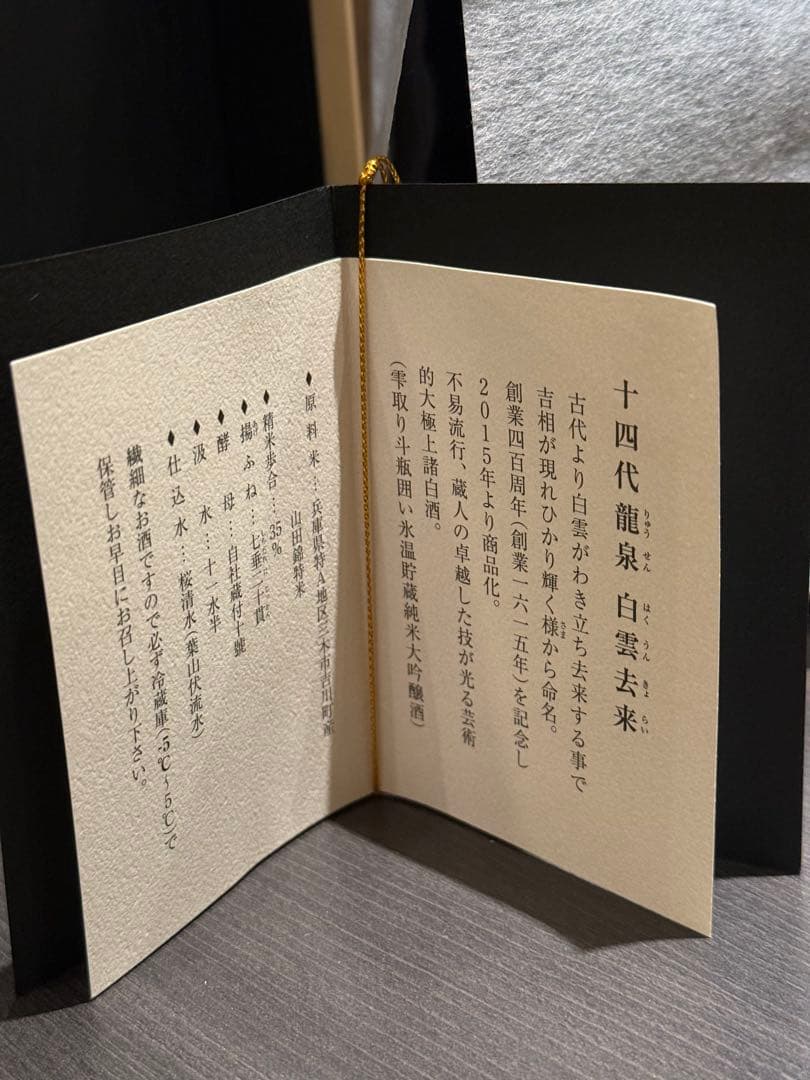 十四代 龍泉 白雲去来
りゅう せん はく うん きょ らい
古代より白雲がわき立ち去来する事で
吉相が現れひかり輝く様から命名。
さま
創業四百周年(創業一六一五年)を記念し
2015年より商品化。
不易流行、蔵人の卓越した技が光る芸術
的大極上諸白酒。
(雫取り斗瓶囲い氷温貯蔵純米大吟醸酒)
♦原料米…兵庫県特A地区三木市吉川町産
山田錦特米
♦精米歩合…35%
♦揚ふね…七垂二十貫
♦酵母…自社蔵付十號
♦汲水…十一水半
♦仕込水…桜清水(葉山伏流水)
繊細なお酒ですので必ず冷蔵庫(-5℃~5℃)で
保管しお早目にお召し上がり下さい。